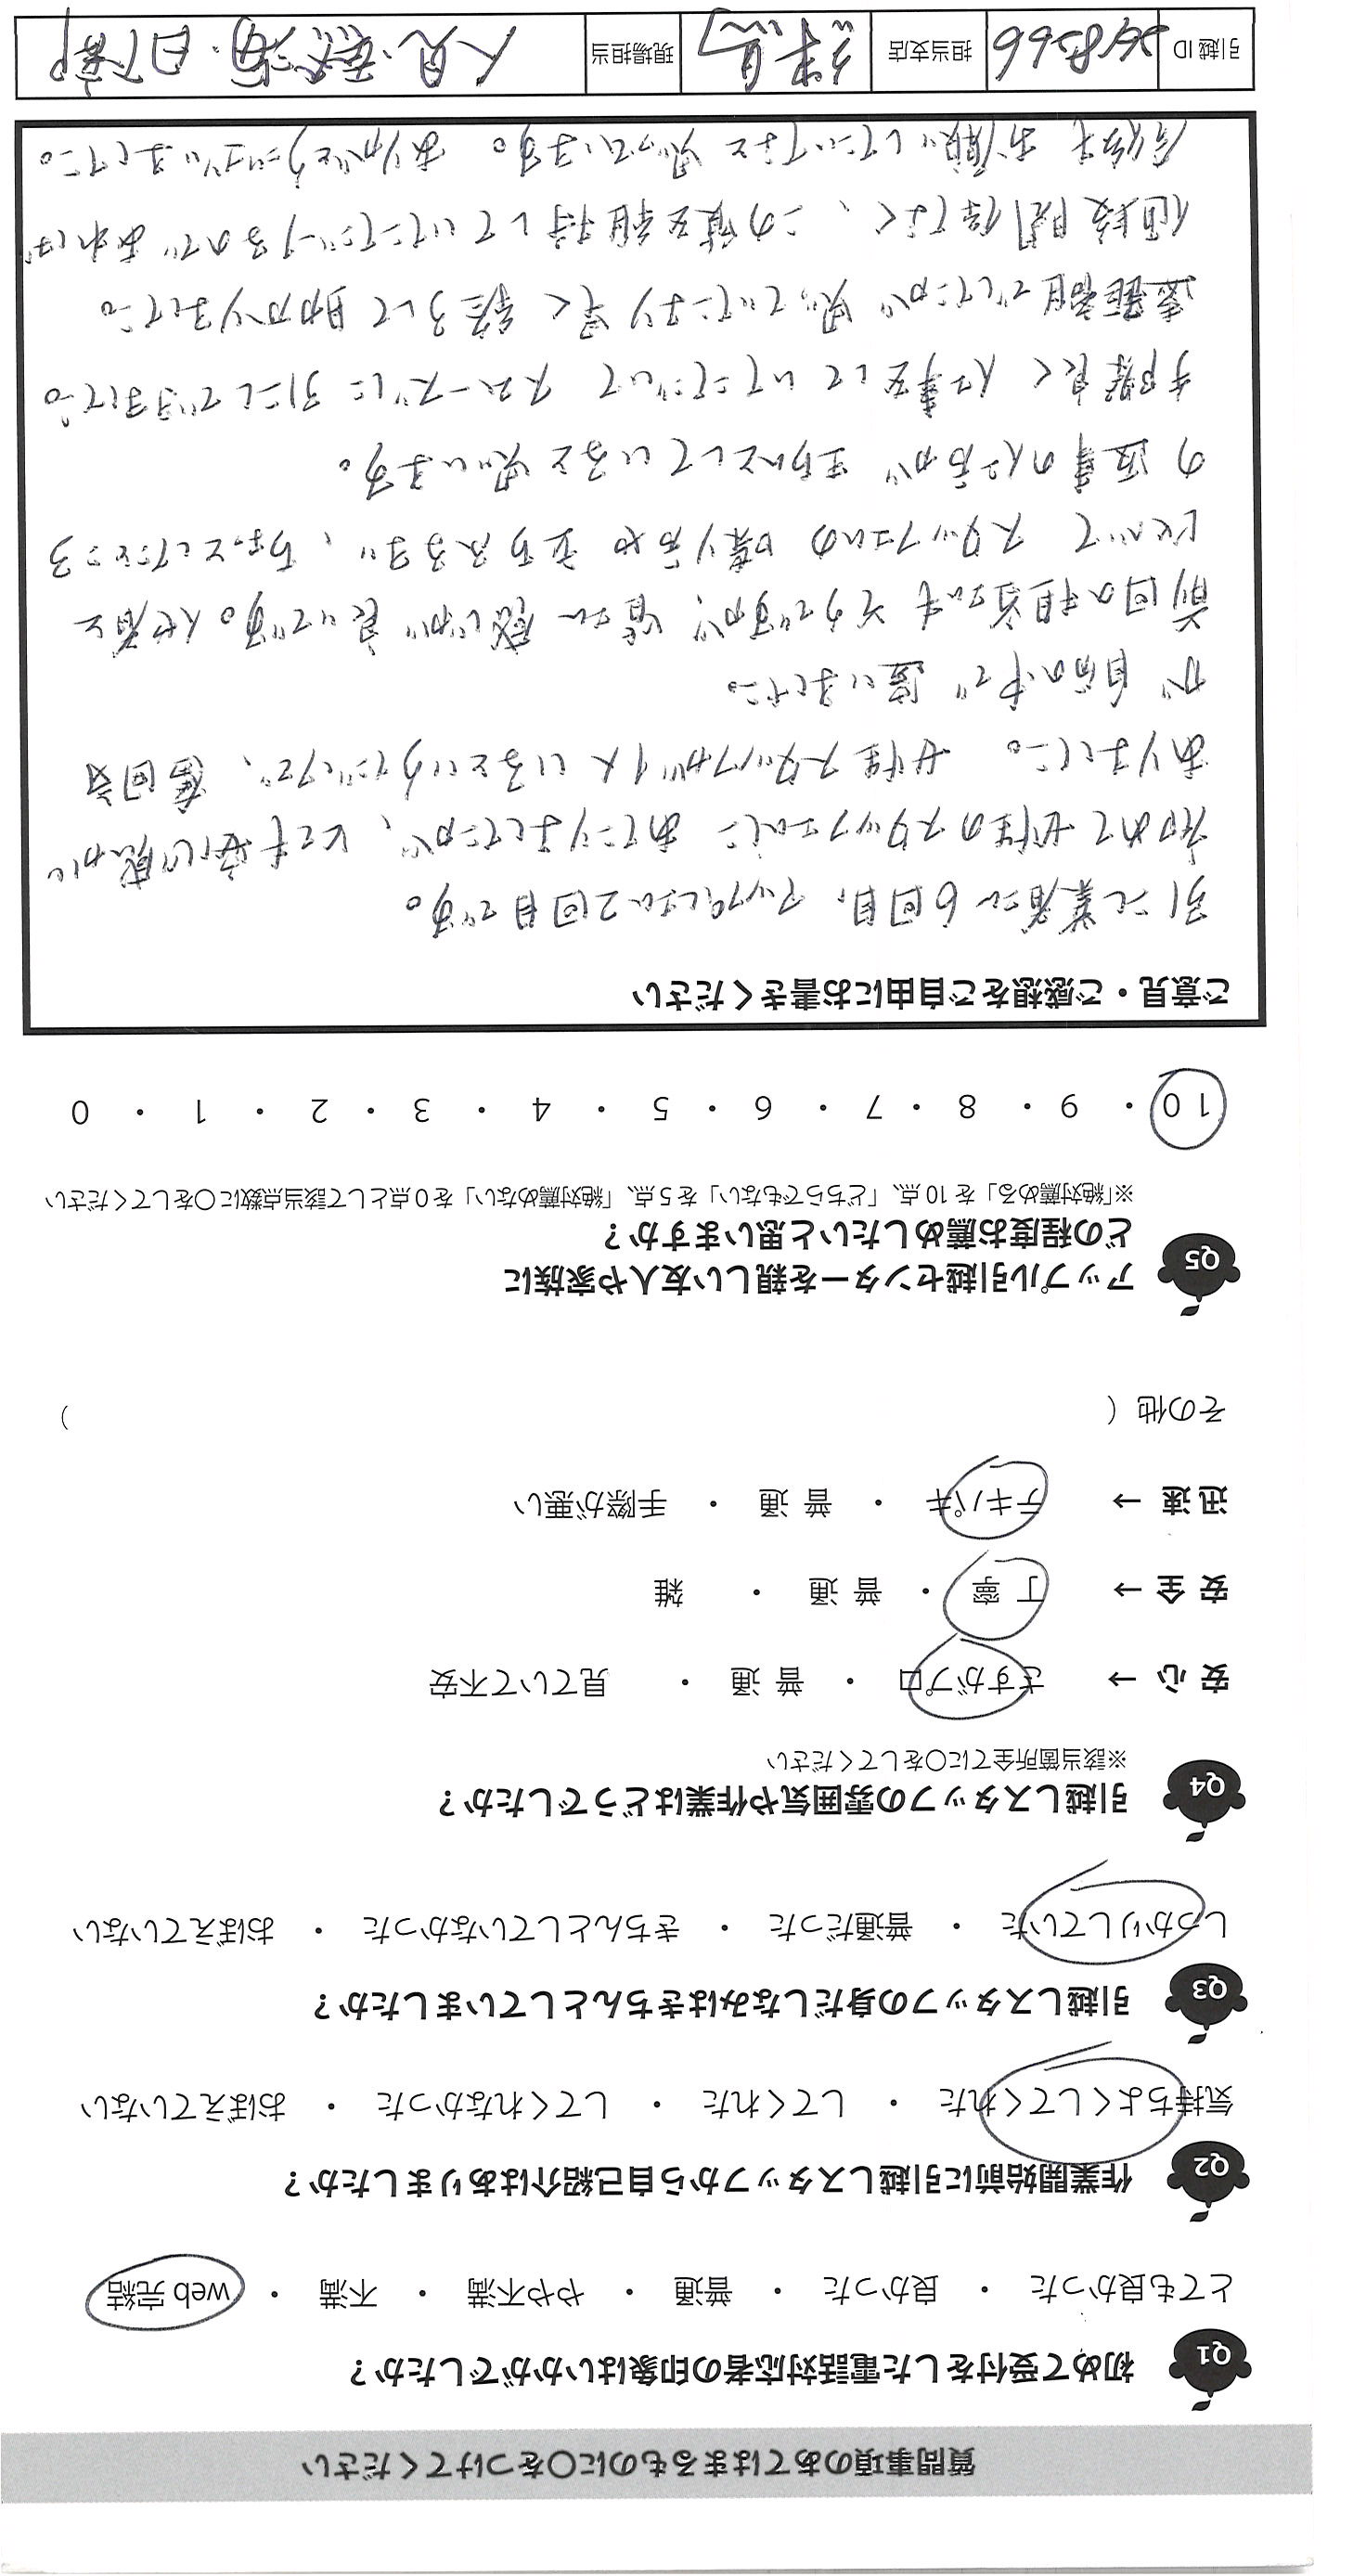 質問事項のあてはまるものに○をつけてください
Q1 初めて受付をした電話対応者の印象はいかがでしたか？
とても良かった ・ 良かった ・ 普通 ・ やや不満 ・ 不満 ・ web 完結
Q2 作業開始前に引越しスタッフから自己紹介はありましたか？
気持ちよくしてくれた ・ してくれた ・ してくれなかった ・ おぼえていない
Q3 引越しスタッフの身だしなみはきちんとしていましたか？
しっかりしていた ・ 普通だった ・ きちんとしていなかった ・ おぼえていない
Q4 引越しスタッフの雰囲気や作業はどうでしたか？
※該当箇所全てに○をしてください
安 心 → さすがプロ ・ 普 通 ・ 見ていて不安
安 全 → 丁 寧 ・ 普 通 ・ 雑
迅 速 → テキパキ ・ 普 通 ・ 手際が悪い
その他（ ）
Q5 アップル引越センターを親しい友人や家族に
どの程度お薦めしたいと思いますか？
※「絶対薦める」を 10 点、「どちらでもない」を 5 点、「絶対薦めない」を 0 点として該当点数に○をしてください
10 ・ 9 ・ 8 ・ 7 ・ 6 ・ 5 ・ 4 ・ 3 ・ 2 ・ 1 ・ 0
ご意見・ご感想をご自由にお書きください
引こし業者さん6回目、アップルさん2回目です。
初めて女性のスタッフさんにあたりましたが、とても安心感が
ありました。女性スタッフが1人いるというだけで、雰囲気
が自分の中で違いました。
前回の担当さんもそうですが、皆さん感じが良いです。他者と
比べて スタッフさんの喋り方や立ちふるまい、ちょっとしたところ
の返事の仕方が きちんとしていると思います。
手際良く仕事をしていただいて スムーズに引こしできました。
遠距離でしたが 思っていたより早く終えて助かりました。
値段関係なく、この質を維持していただけるのであれば、
今後もお願いしたいなと思っています。ありがとうございました。
引越 ID 担当支店 練馬 現場担当 人見・ ・日下部